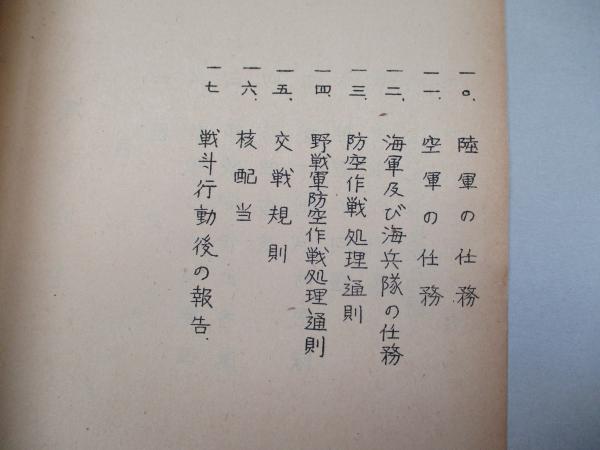 一〇、陸軍の任務
一一、空軍の任務
一二、海軍及び海兵隊の任務
一三、防空作戦処理通則
一四、野戦軍防空作戦処理通則
一五、交戦規則
一六、核配当
一七 戦斗行動後の報告.